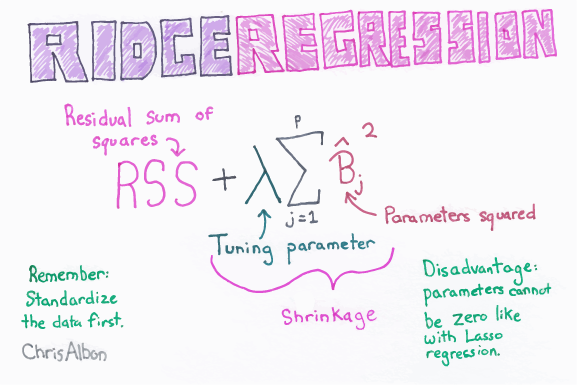 RIDGE REGRESSION
Residual sum of
squares
RSS + λ Σ B̂j ²
p
j=1
Parameters squared
Tuning parameter
Shrinkage
Remember:
Standardize
the data first.
ChrisAlbon
Disadvantage:
parameters cannot
be zero like
with Lasso
regression.